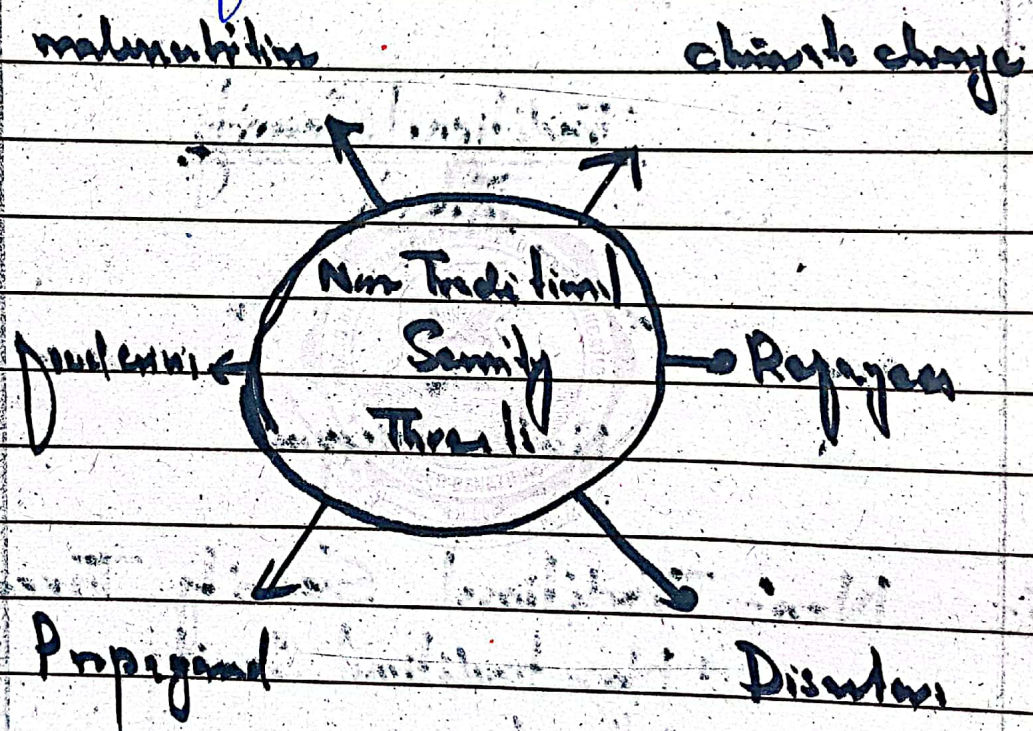 malnutrition
climate change
Non Traditional
Security
Threats
pandemics
Refugees
Propagand
Disasters